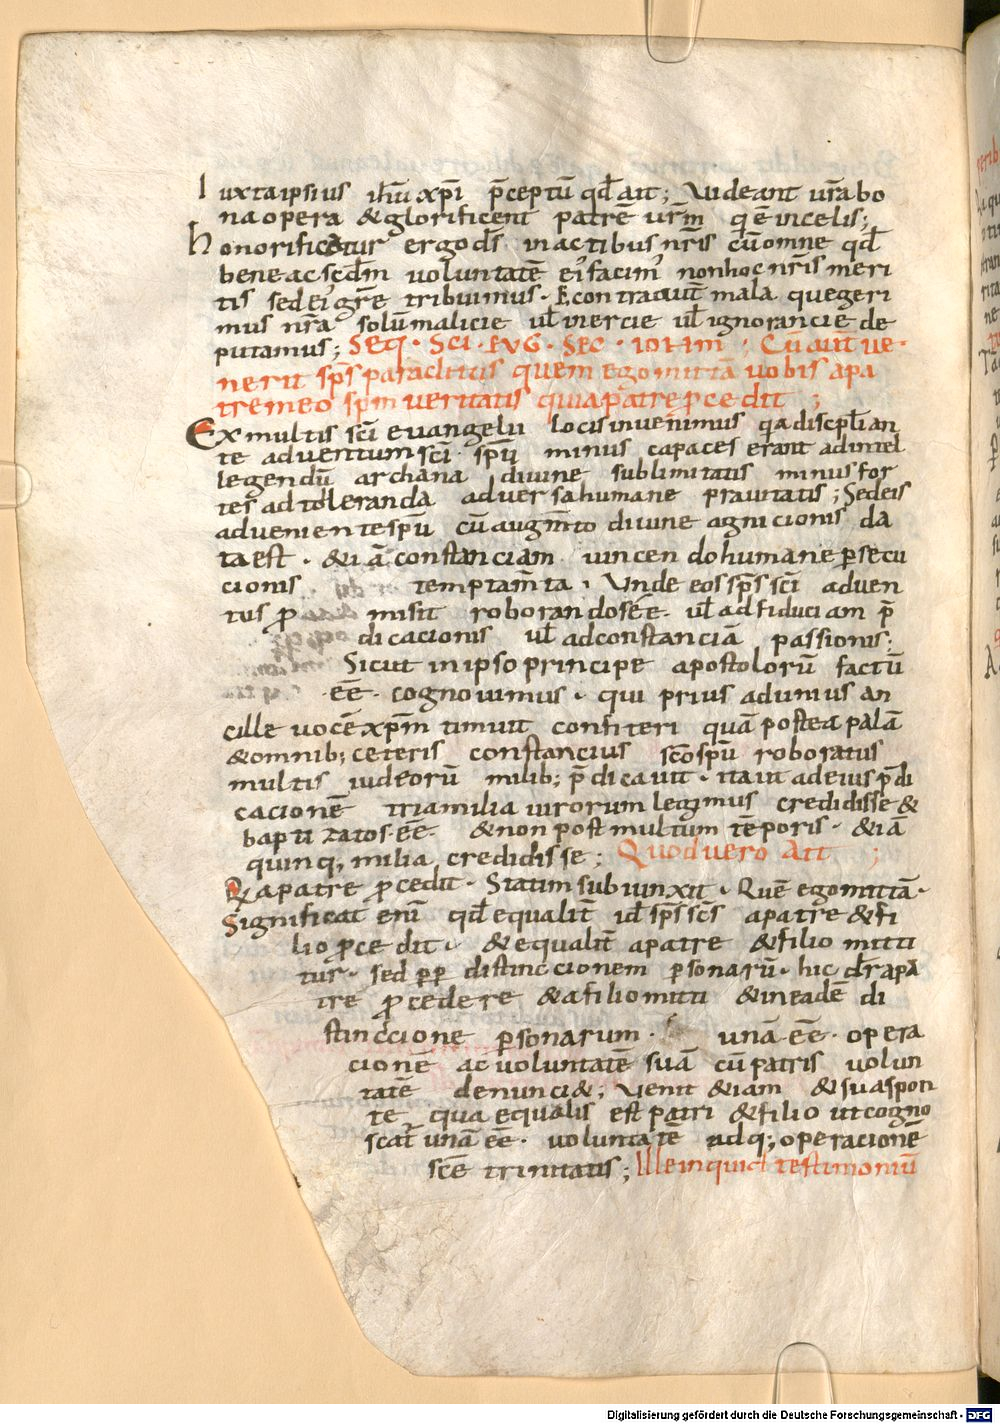 Iuxta ipsius ihu xpi p̄ceptū qd̄ ait; Videant ur̄a bo
na opera & glorificent patrē ur̄m qi ē in celis;
honorificetur ergo ds̄ in actibus nr̄is cū omne qd̄
bene ac scdm̄ voluntatē ei' facim' non hoc nr̄is meri
tis sed ei' gr̄e tribuimus · E contra aut̄ mala que geri
mus nr̄a solum malicie ul̄ inercie ul̄ ignorancie de
putamus; Seq̄ · Sci · EVG · SEC · IOHM ; Cū aut̄ ve·
nerit sp̄s paraclitus quem ego mittā vobis a pa
tre meo sp̄m veritatis qui a patre p̄cedit ;
Ex multis sc̄i evangelii locis invenimus qa discipl̄i an
te adventum sc̄i sp̄u minus capaces erant ad intel
legendū archana divine sublimitatis minus for
tes ad toleranda adversa humane pravitatis; Sed eis
adveniente sp̄u cū augm̄to divine agnicionis da
ta est · & iā constanciam vincendo humane p̄secu
cionis temptam̄ta · Unde eos sp̄s sc̄i adven
tus p̄ misit roborandos eē· ul̄ ad fiduciam p̄
dicacionis ul̄ ad constanciā passionis;
Sicut in ipso principe apostolorū factū
·eē· cognovimus · qui prius ad unius an
cille vocē xp̄m timuit confiteri quā postea palā
& omnib; ceteris constancius sc̄o sp̄u roboratus
multis iudeorū milib; p̄dicavit · ita ut ad eius p̄di
cacionē tria milia virorum legimus credidisse &
baptizatos ·eē· & non post multum tēporis · & iā
quinq; milia credidisse; Quod vero Ait ;
& a patre p̄cedit · Statim subiunxit · Quē ego mittā·
Significat enī qd̄ equalit̄ id sp̄s sc̄s a patre & fi
lio p̄cedit · & equalit̄ a patre & filio mitti
tur · sed p̄p̄ distinccionem p̄sonarū · hic dr̄ a pa
tre p̄cedere & a filio mitti & in eadē di
stinccione p̄sonarum · unā ·eē· opera
cionē ac voluntatē suā cū patris volun
tatē denunci&; Venit & iam & sua spon
te qua equalis est patri & filio ut cogno
scat̄ unā eē · voluntatē adq; operacionē
sc̄e trinitatis; Ille inquid testimoniū
Digitalisierung gefördert durch die Deutsche Forschungsgemeinschaft - DFG